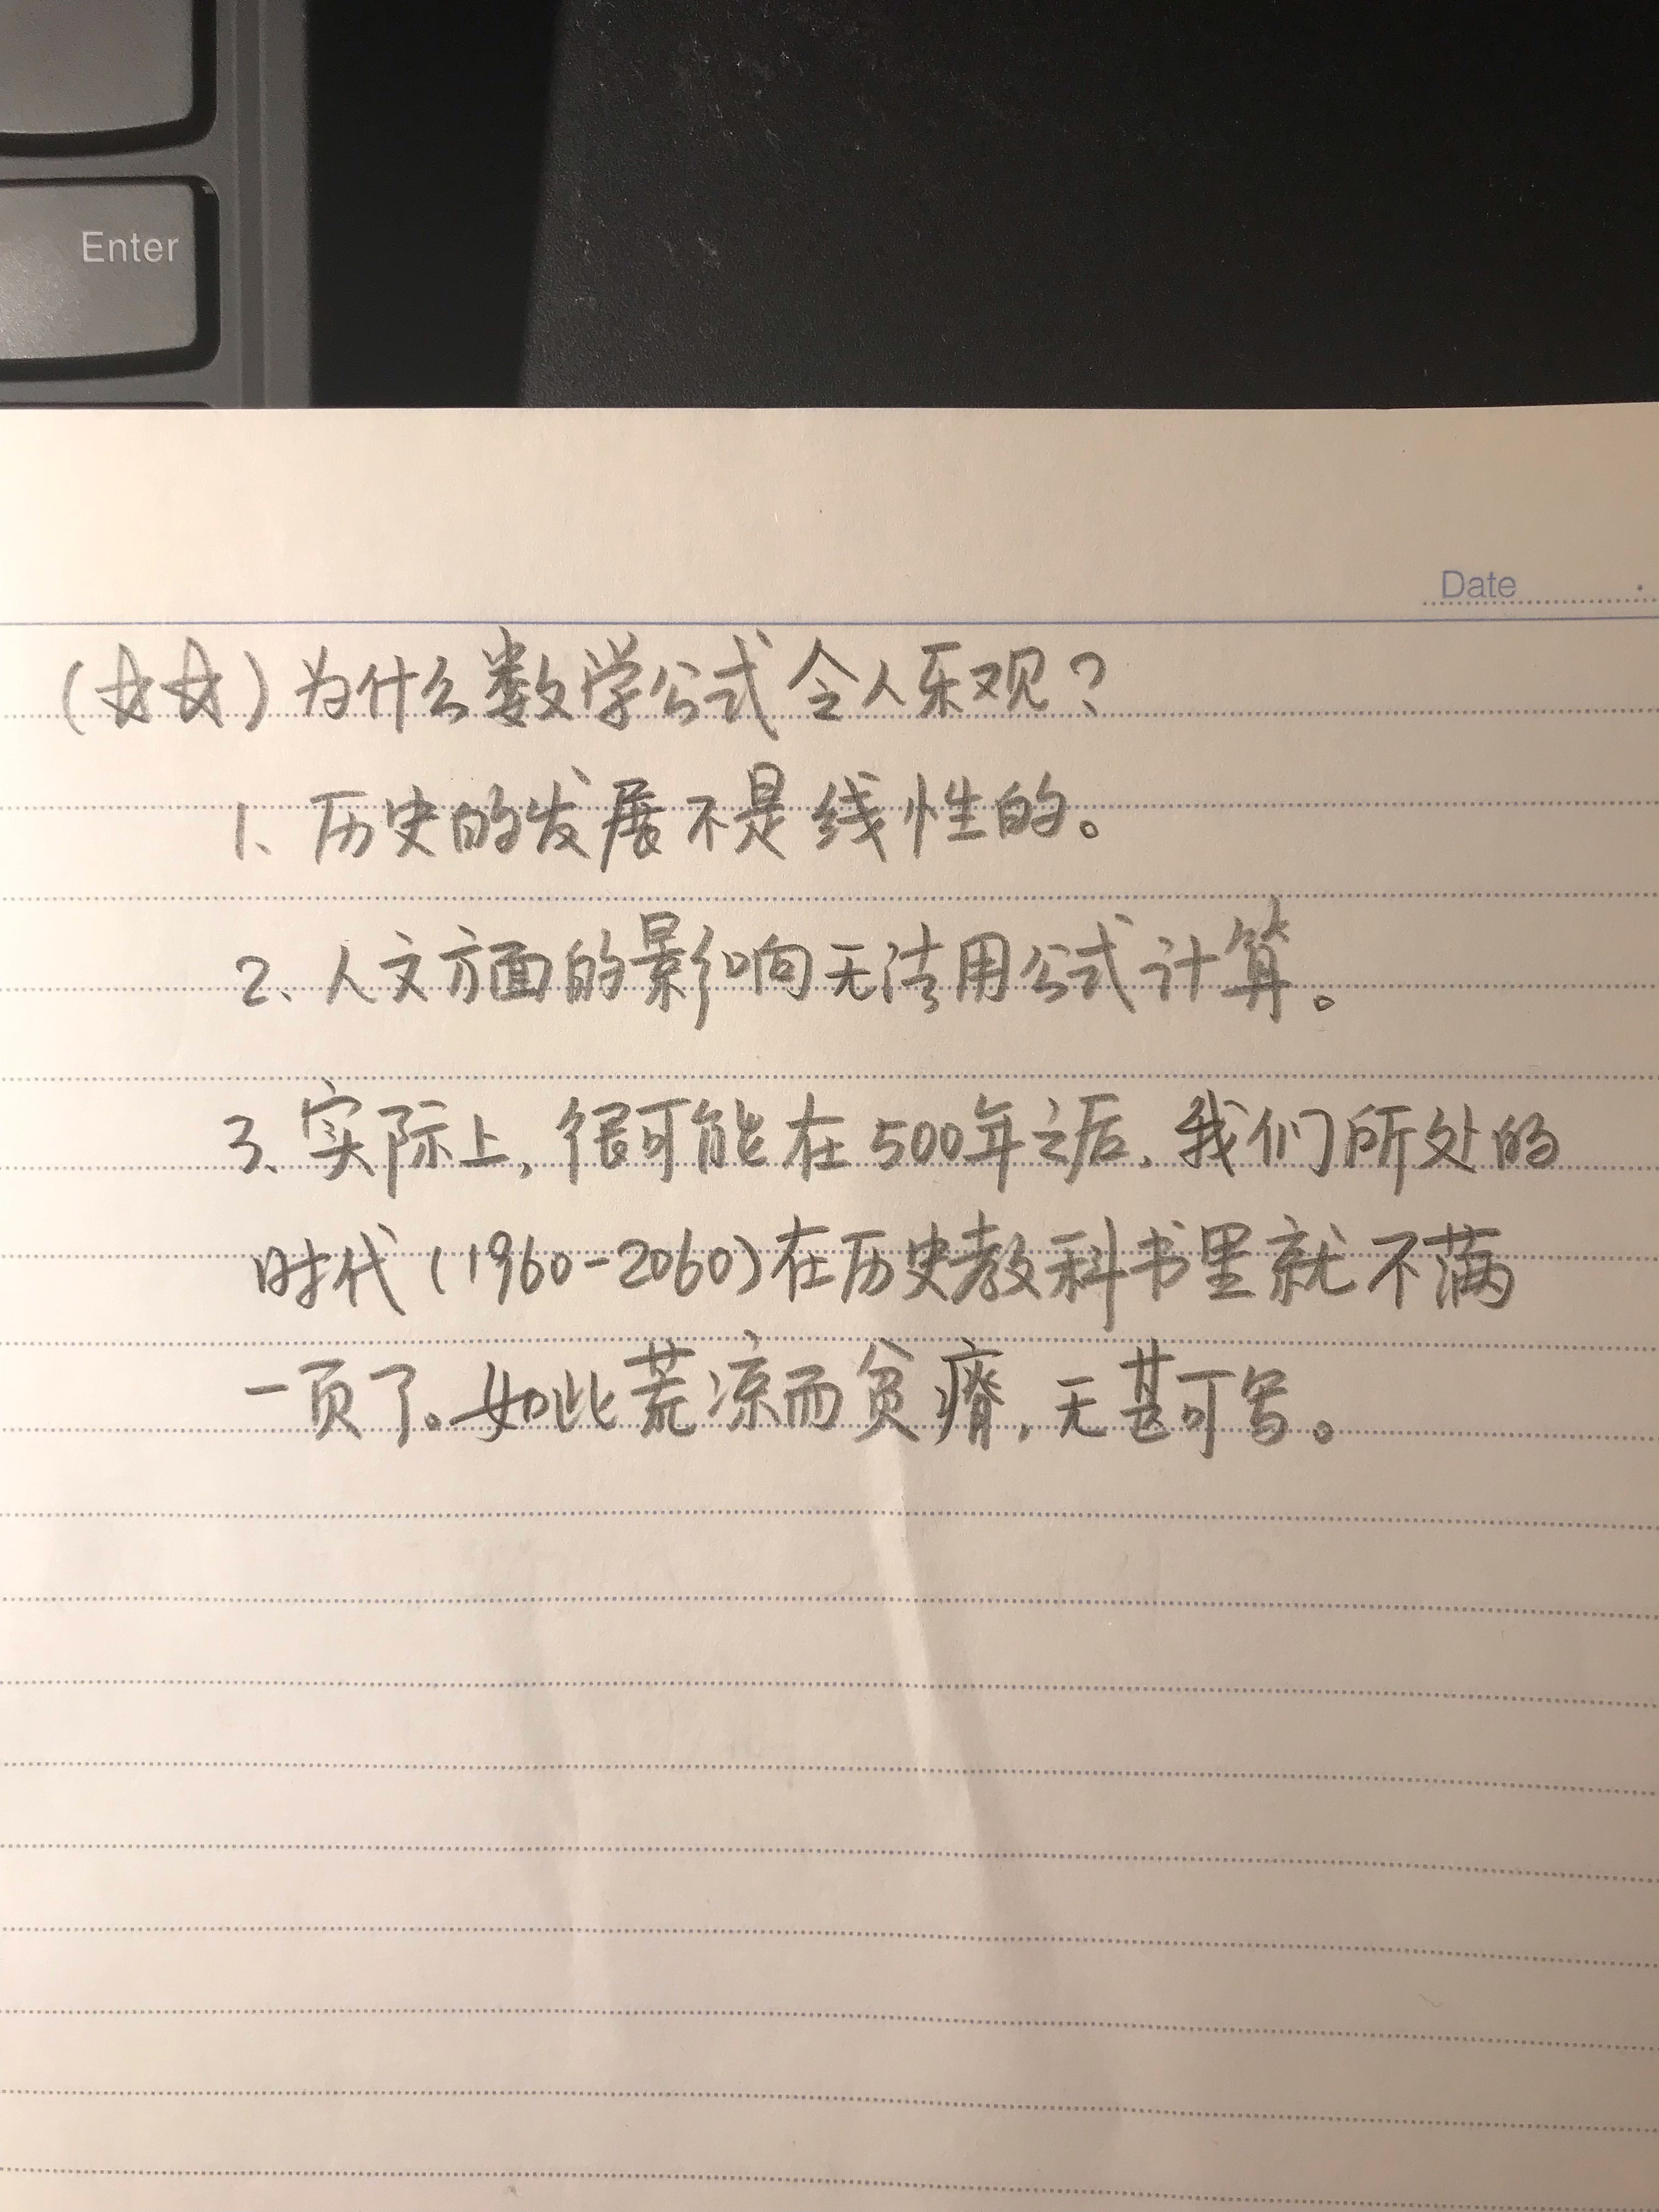 Enter
Date
(☆☆)为什么数学公式令人乐观?
1、历史的发展不是线性的。
2、人文方面的影响无法用公式计算。
3、实际上,很可能在500年之后,我们所处的
时代(1960-2060)在历史教科书里就不满
一页了。如此荒凉而贫瘠,无甚可写。